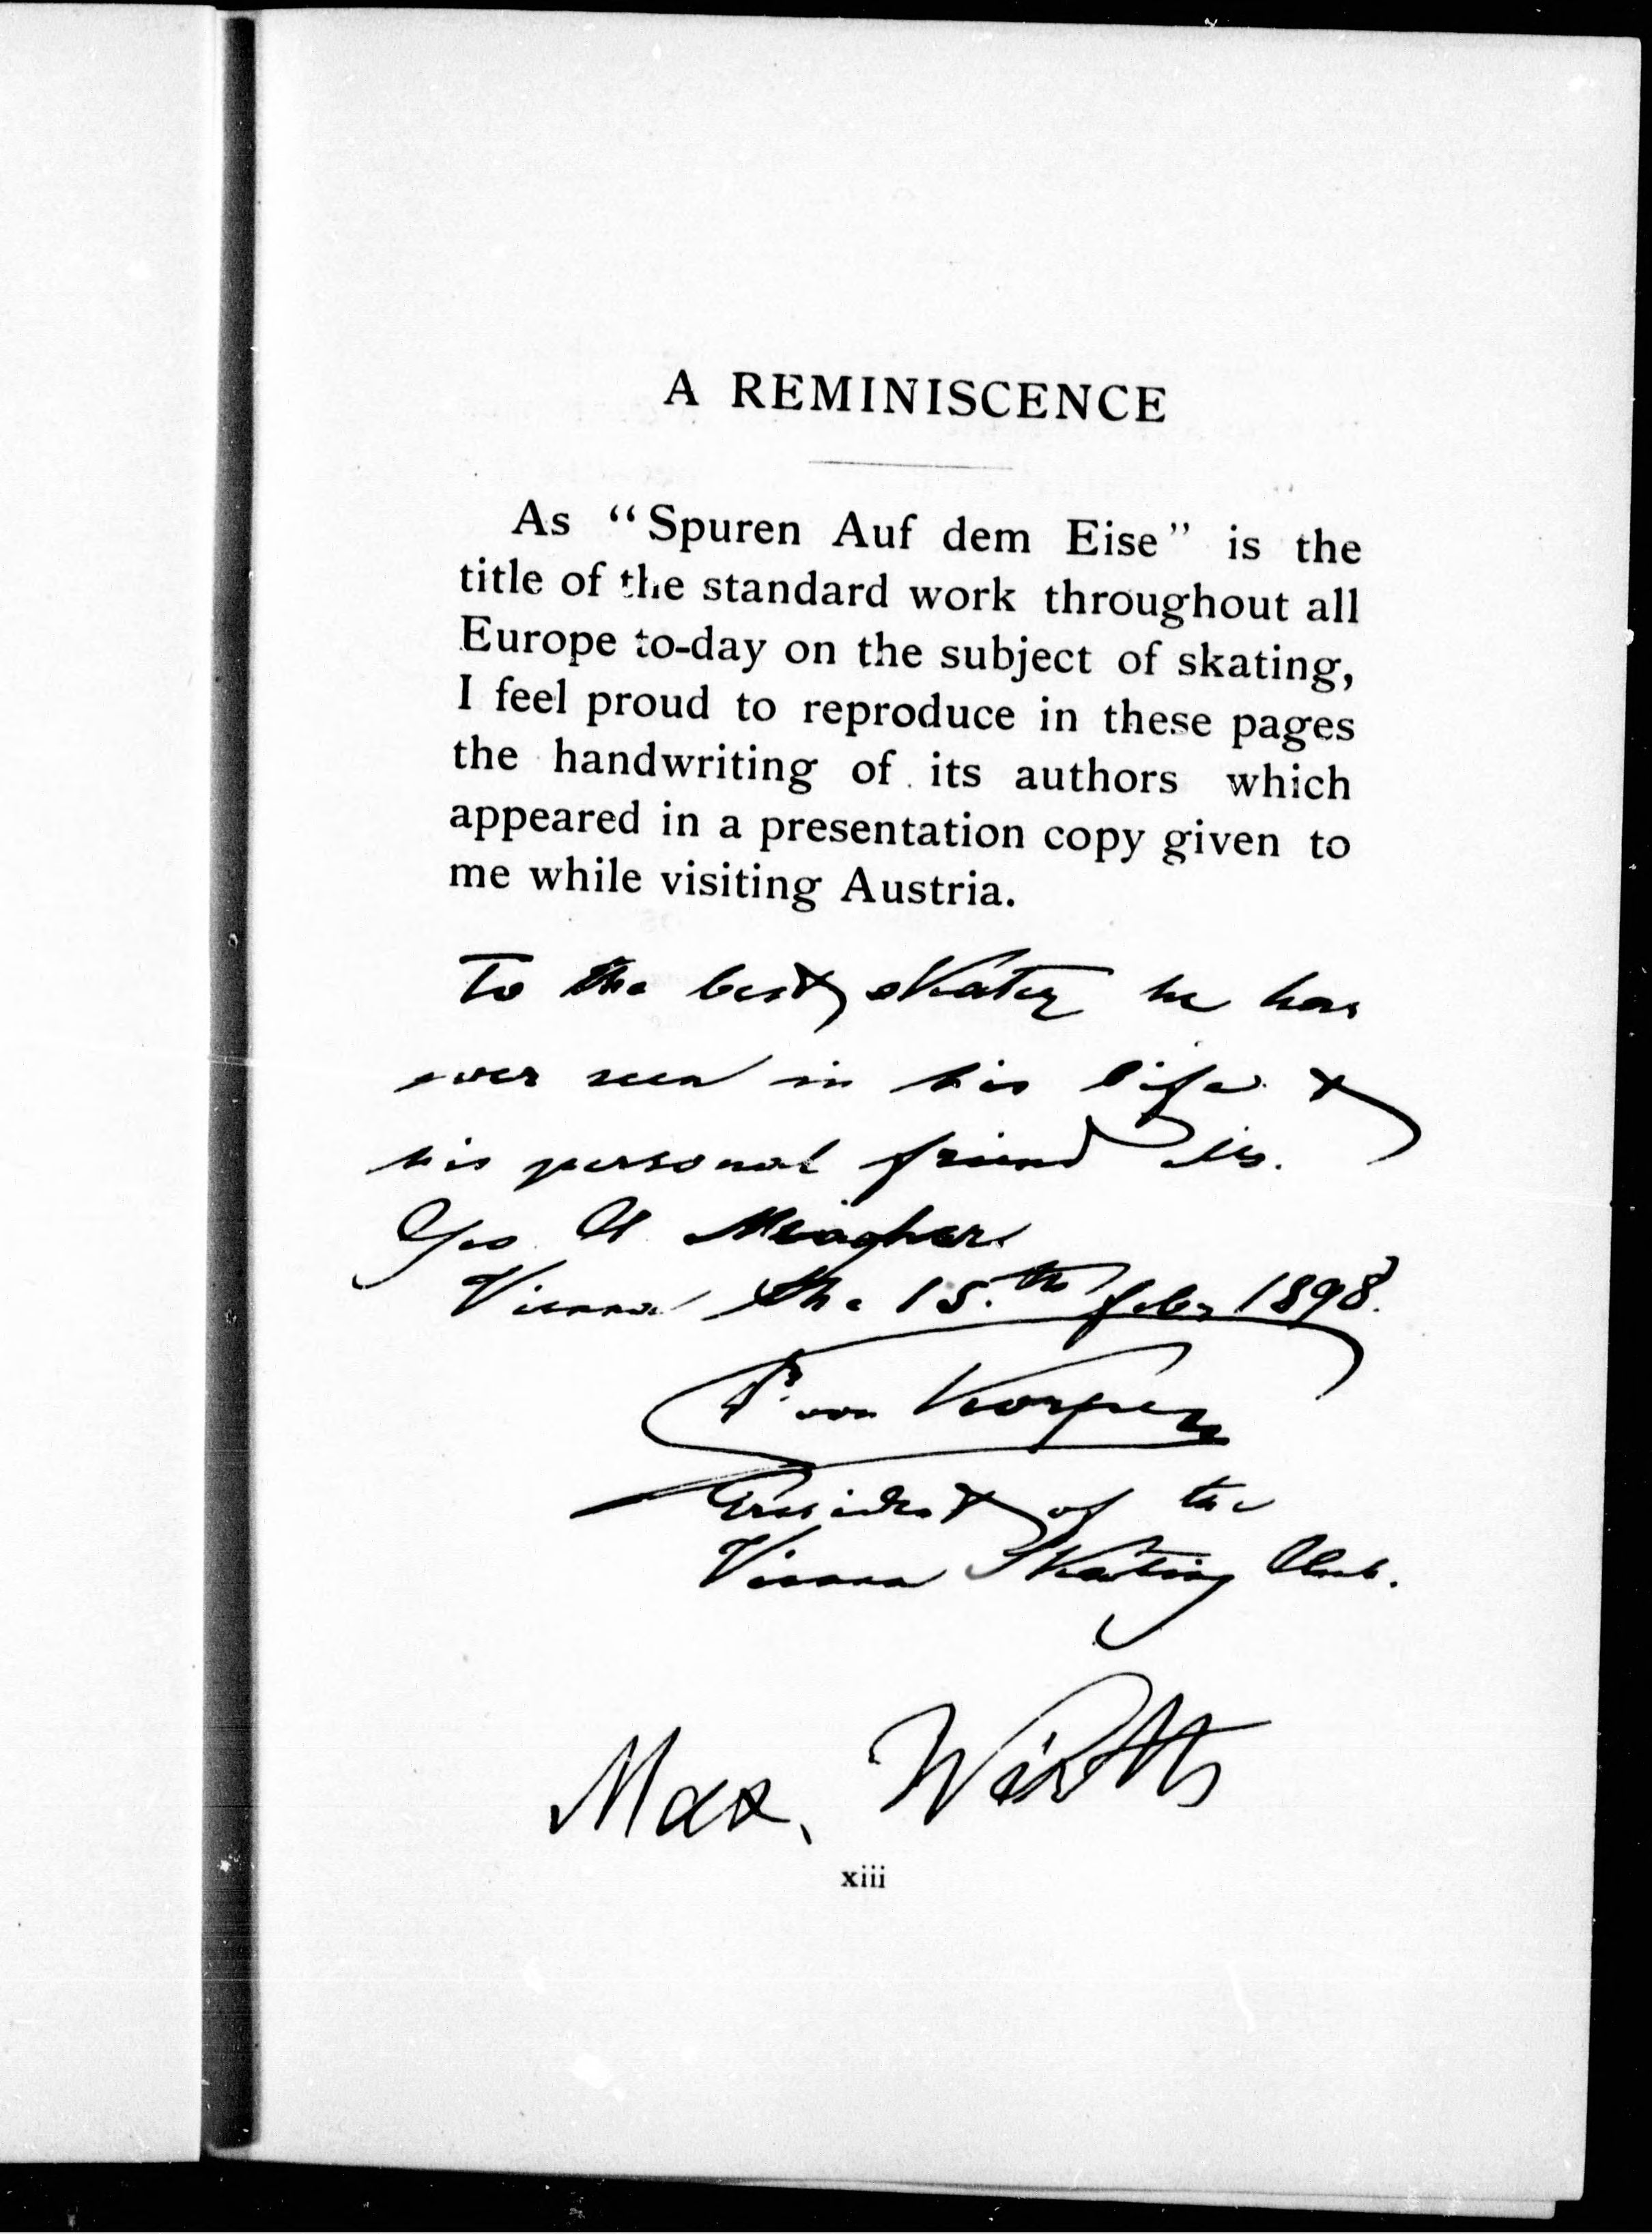 A REMINISCENCE
As "Spuren Auf dem Eise" is the
title of the standard work throughout all
Europe to-day on the subject of skating,
I feel proud to reproduce in these pages
the handwriting of its authors which
appeared in a presentation copy given to
me while visiting Austria.
To the best skater he has
ever seen in his life &
his personal friend
Geo A Meagher
Vienna the 15.th feby 1898.
von Korper
President of the
Vienna Skating Club.
Max. Wirth
xiii